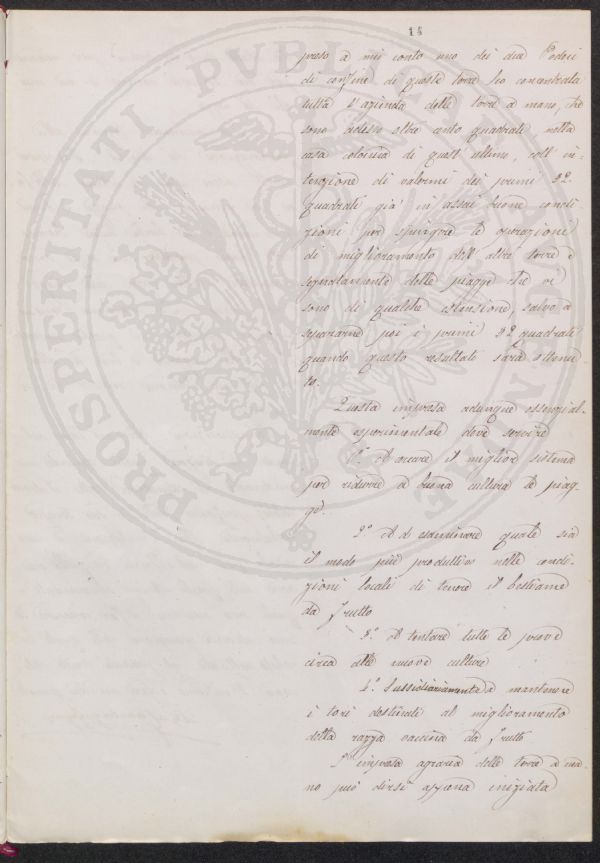 14
preso a mio conto uno dei due Poderi
di confine di queste terre ho concentrata
tutta l'azienda delle terre a mano, che
sono adesso oltre cento quadrati nella
casa colonica di quest'ultimo, coll'in-
tenzione di valermi dei primi 22
quadrati già in assai buone condi-
zioni per spingere le operazioni
di miglioramento dell'altre terre e
segnatamente delle piagge che vi
sono di qualche estensione, salvo a
separarne poi i primi 22 quadrati
quando questo resultato sarà ottenu-
to.
Questa impresa adunque essenzial-
mente esperimentale deve servire
1.° A cercare il miglior sistema
per ridurre a buona cultura le piag-
ge.
2.° A d esaminare quale sia
il modo più produttivo nelle condi-
zioni locali di tenere il bestiame
da frutto
3.° A tentare tutte le prove
circa alle nuove culture
4.° Sussidiariamente a mantenere
i tori destinati al miglioramento
della razza vaccina da frutto
L'impresa agraria delle terre a ma-
no può dirsi appena iniziata
PROSPERITATI PVBLICAE